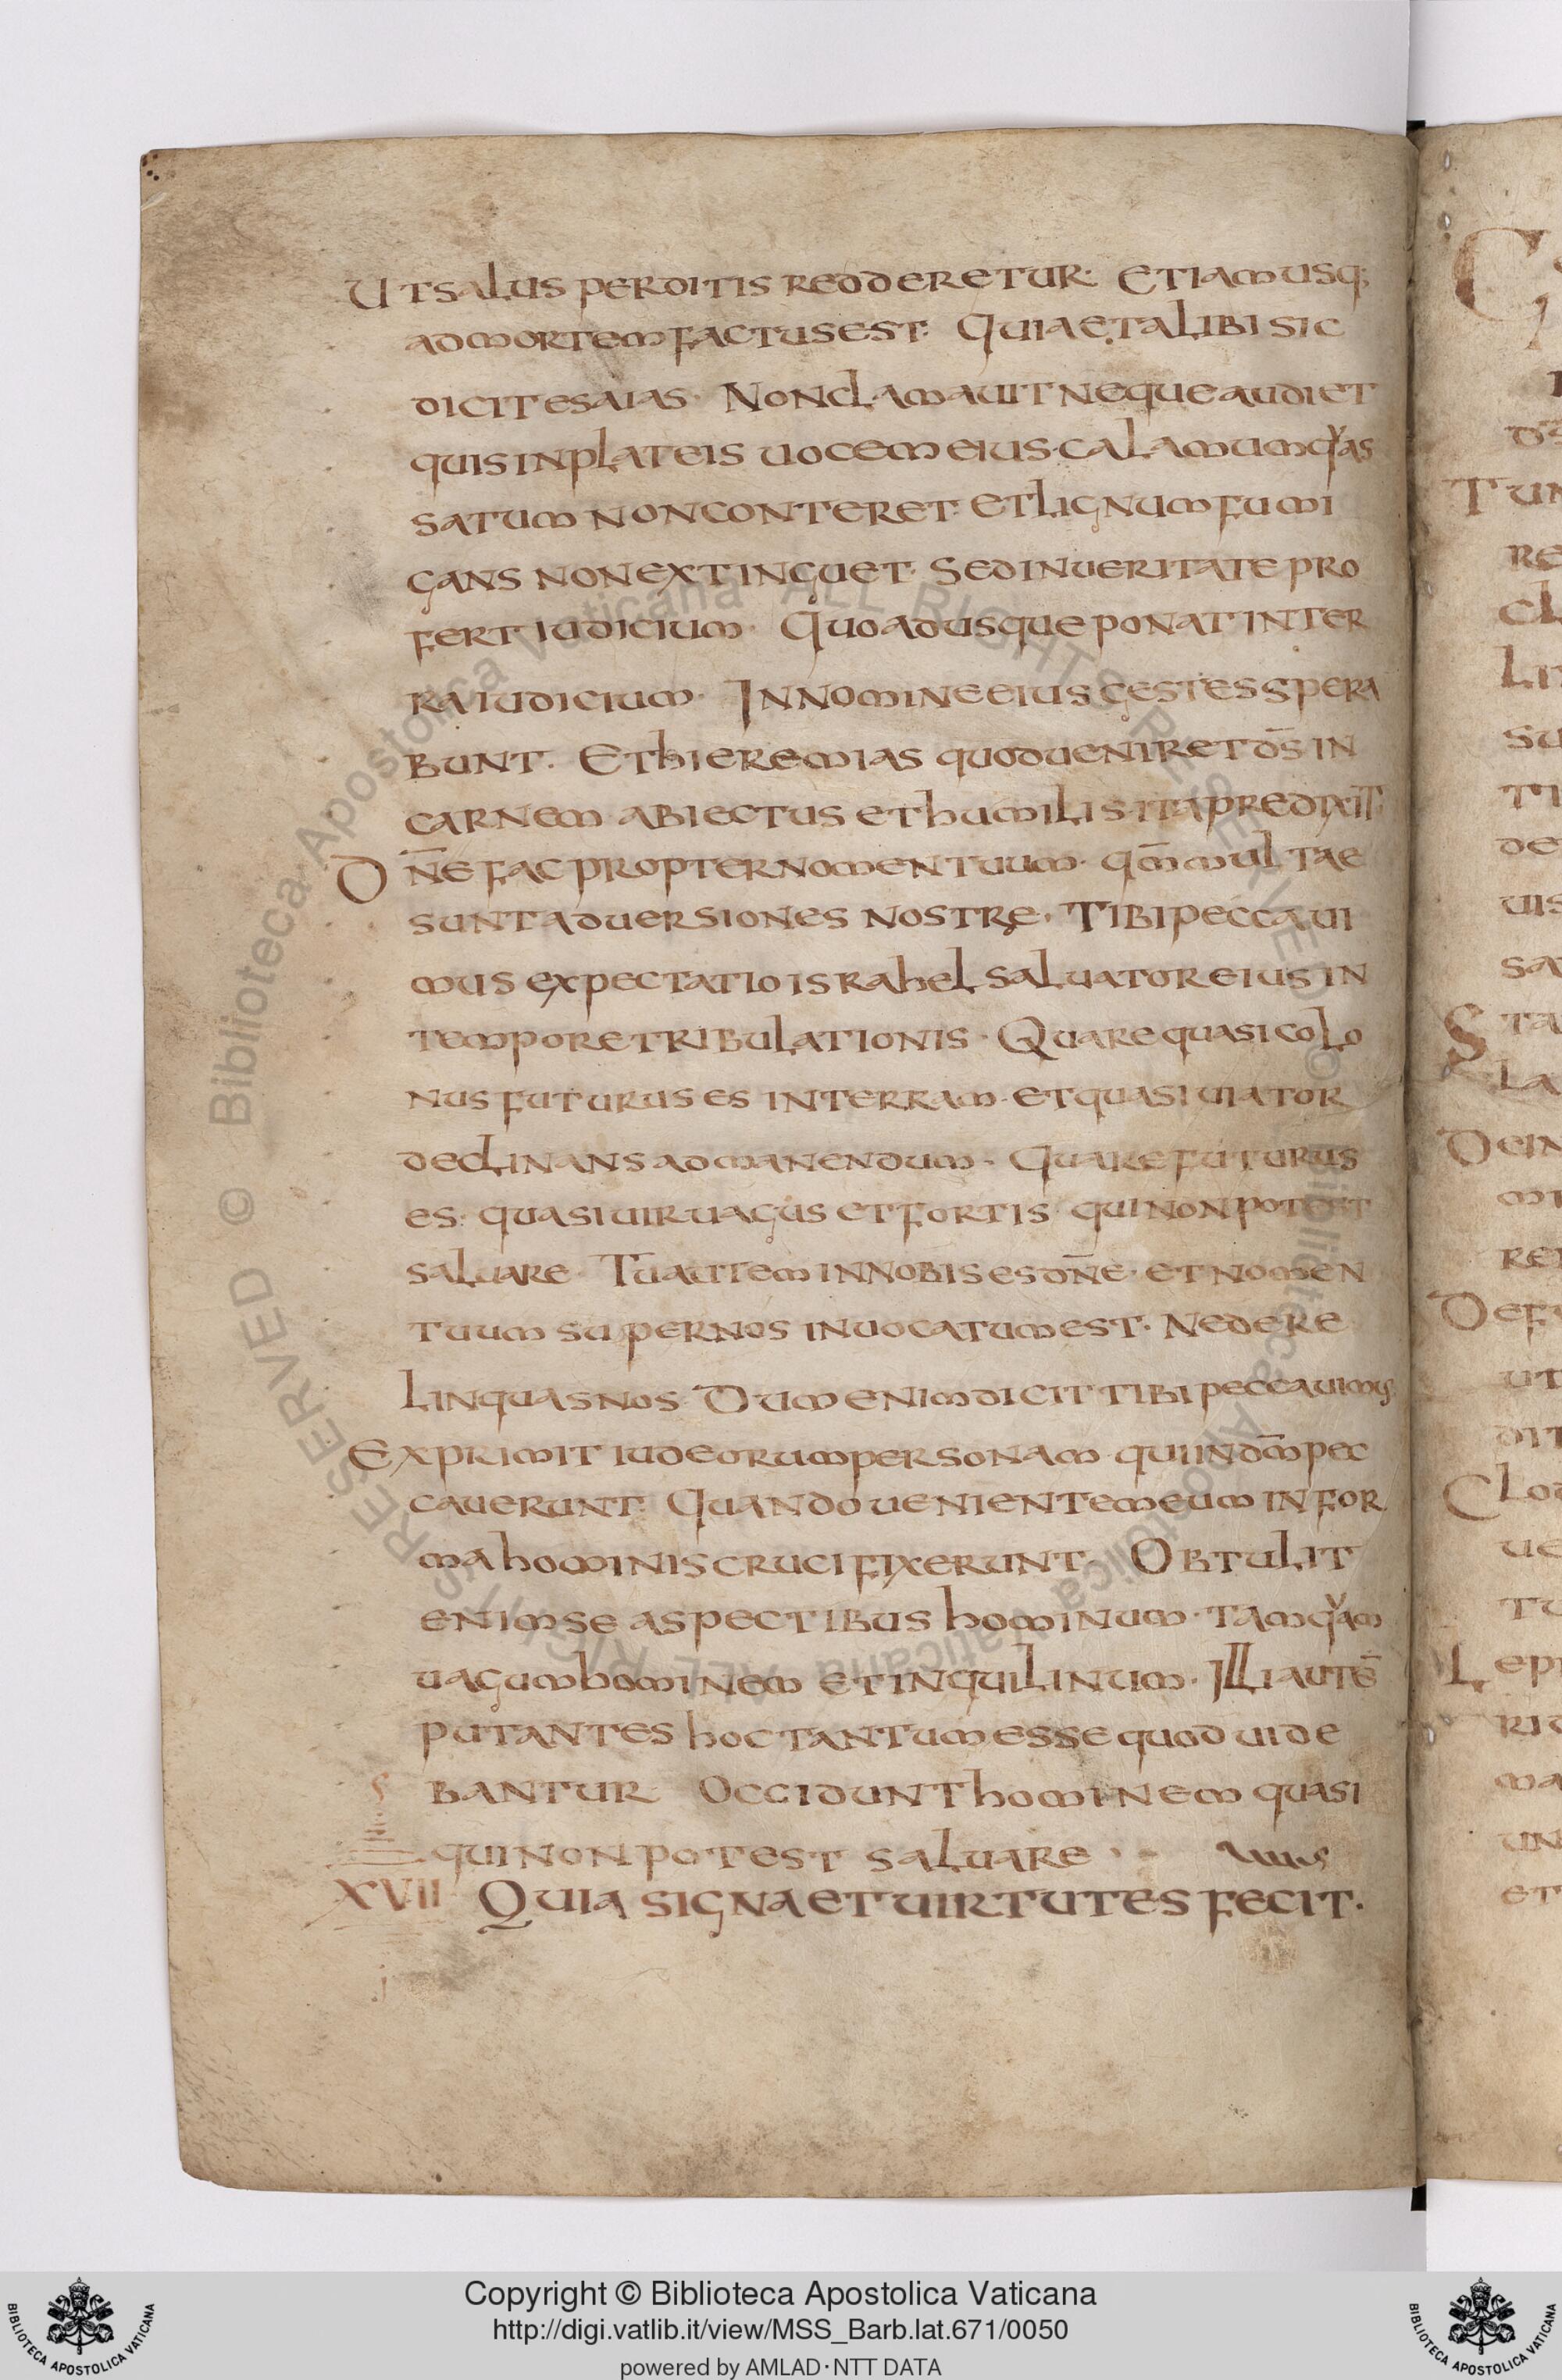 UTSALUS PERDITIS REDDERETUR· ETIAMUSQ;
ADMORTEMFACTUSEST· QUIAETALIBI SIC
DICITESAIAS· NONCLAMAUITNEQUEAUDIET
QUISINPLATEIS UOCEMEIUS·CALAMUMQUAS
SATUM NONCONTERET· ETLIGNUMFUMI
GANS NONEXTINGUET· SEDINUERITATEPRO
FERTIUDICIUM· QUOADUSQUEPONATINTER
RAIUDICIUM· INNOMINEEIUSGESTESSPERA
BUNT· ETHIEREMIAS QUODUENIRETD̄S IN
CARNEM ABIECTUS ETHUMILIS·ITAPREDIXIT;
DN̄EFACPROPTERNOMENTUUM· QM̄MULTAE
SUNTADUERSIONES NOSTRĘ· TIBIPECCAUI
MUS EXPECTATIOISRAHEL SALUATOREIUSIN
TEMPORETRIBULATIONIS· QUAREQUASICOLO
NUSFUTURUSES INTERRAM·ETQUASIUIATOR
DECLINANSADMANENDUM· QUAREFUTURUS
ES· QUASIUIRUAGUS ETFORTIS· QUINONPOTEST
SALUARE· TUAUTEMINNOBISESDN̄E· ETNOMEN
TUUM SUPERNOS INUOCATUMEST· NEDERE
LINQUASNOS· DUMENIMDICITTIBIPECCAUIMUS
EXPRIMIT IUDEORUMPERSONAM·QUIINDM̄PEC
CAUERUNT· QUANDOUENIENTEMEUMINFOR
MAHOMINISCRUCIFIXERUNT· OBTULIT
ENIMSE ASPECTIBUS HOMINUM·TAMQUAM
UAGUMHOMINEM ETINQUILINUM·ILLIAUTĒ
PUTANTES HOCTANTUMESSEQUODUIDE
BANTUR· OCCIDUNTHOMINEM QUASI
QUINONPOTEST SALUARE·
XVII QUIA SIGNAETUIRTUTES FECIT·
Copyright © Biblioteca Apostolica Vaticana
http://digi.vatlib.it/view/MSS_Barb.lat.671/0050
powered by AMLAD·NTT DATA